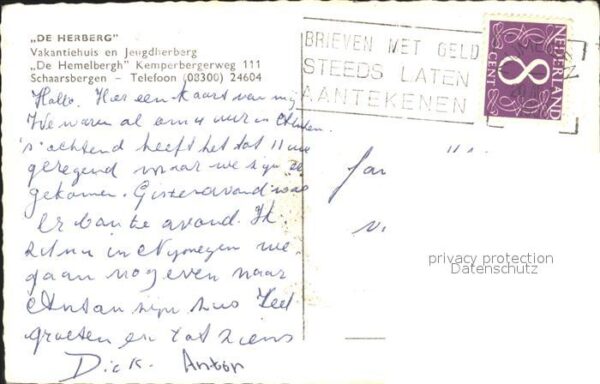 „DE HERBERG"
Vakantiehuis en Jeugdherberg
„De Hemelbergh" Kemperbergerweg 111
Schaarsbergen – Telefoon (08300) 24604
BRIEVEN MET GELD
STEEDS LATEN
AANTEKENEN
NEDERLAND
8
CENT
Hallo. Hier een kaart van mij
We waren al om uur in
's ochtend heeft het tot 11 uur
geregend maar we zijn er
gekomen. Gisteravond was
er bonte avond. Ik
zit nu in Nijmegen we
gaan nog even naar
zijn huis Veel
groeten en tot ziens
Dick. Anton
privacy protection
Datenschutz